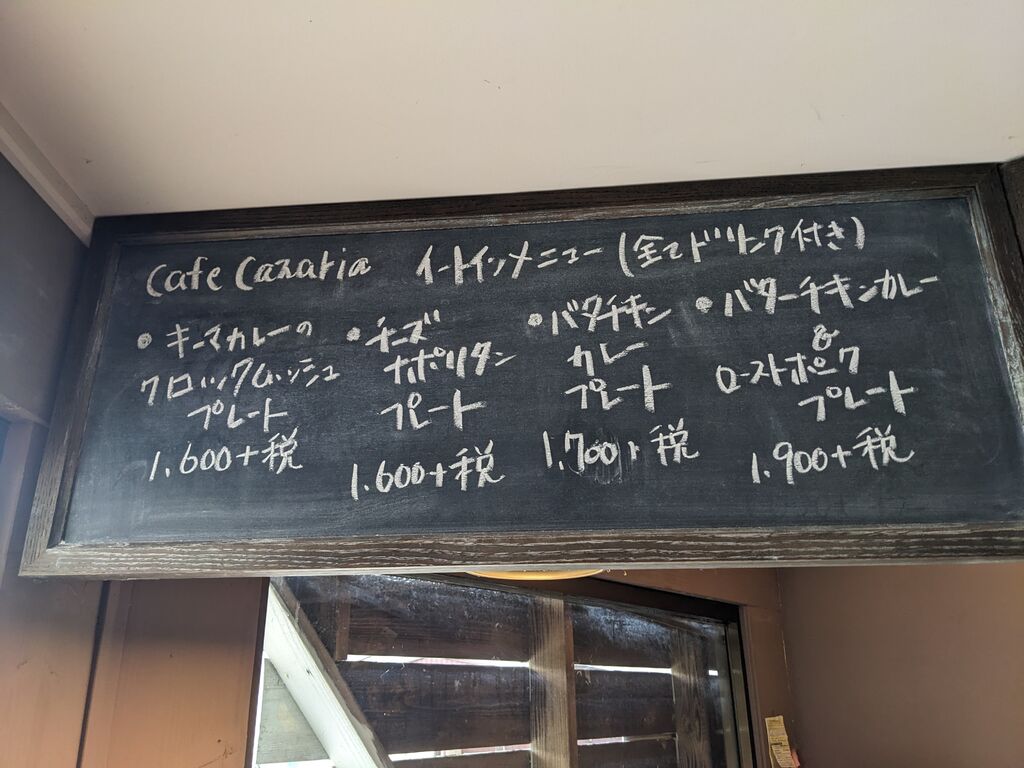 Cafe Cazaria イートインメニュー (全てドリンク付き)
• キーマカレーの
クロックムッシュ
プレート
1.600+税
• チーズ
ナポリタン
プレート
1.600+税
• バタチキン
カレー
プレート
1.700+税
• バターチキンカレー
&
ローストポーク
プレート
1.900+税